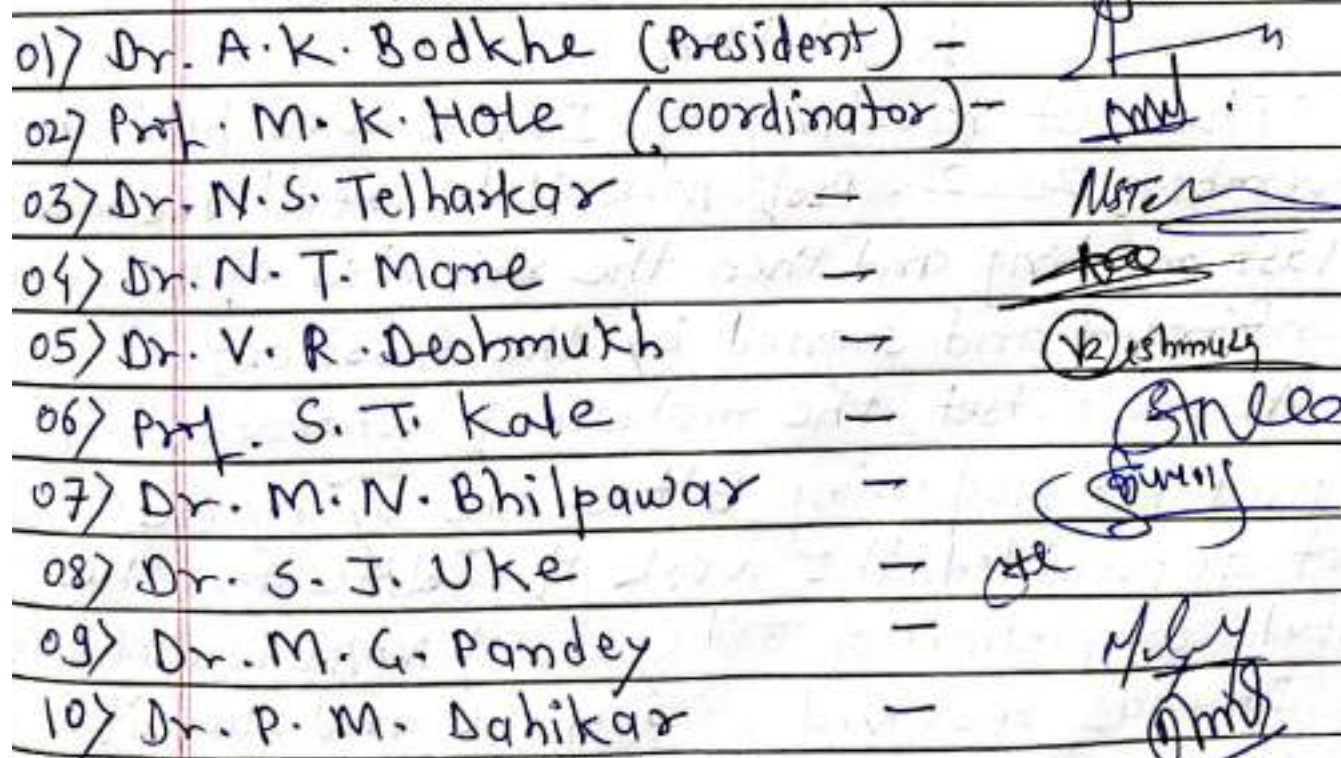 01) Dr. A. K. Bodkhe (President) -
02) Prof. M. K. Hole (Coordinator) -
03) Dr. N. S. Telharkar -
04) Dr. N. T. Mane -
05) Dr. V. R. Deshmukh -
06) Prof. S. T. Kale -
07) Dr. M. N. Bhilpawar -
08) Dr. S. J. Uke -
09) Dr. M. G. Pandey -
10) Dr. P. M. Dahikar -